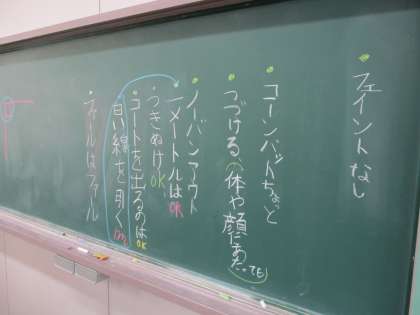 フェイントなし
コーンバットちょっと
つづける、(体や顔にあたっても)
ノーバンアウト
一メートルはOK
つきぬけOK
コートを出るのはOK
白い線を引く
ファールはファール